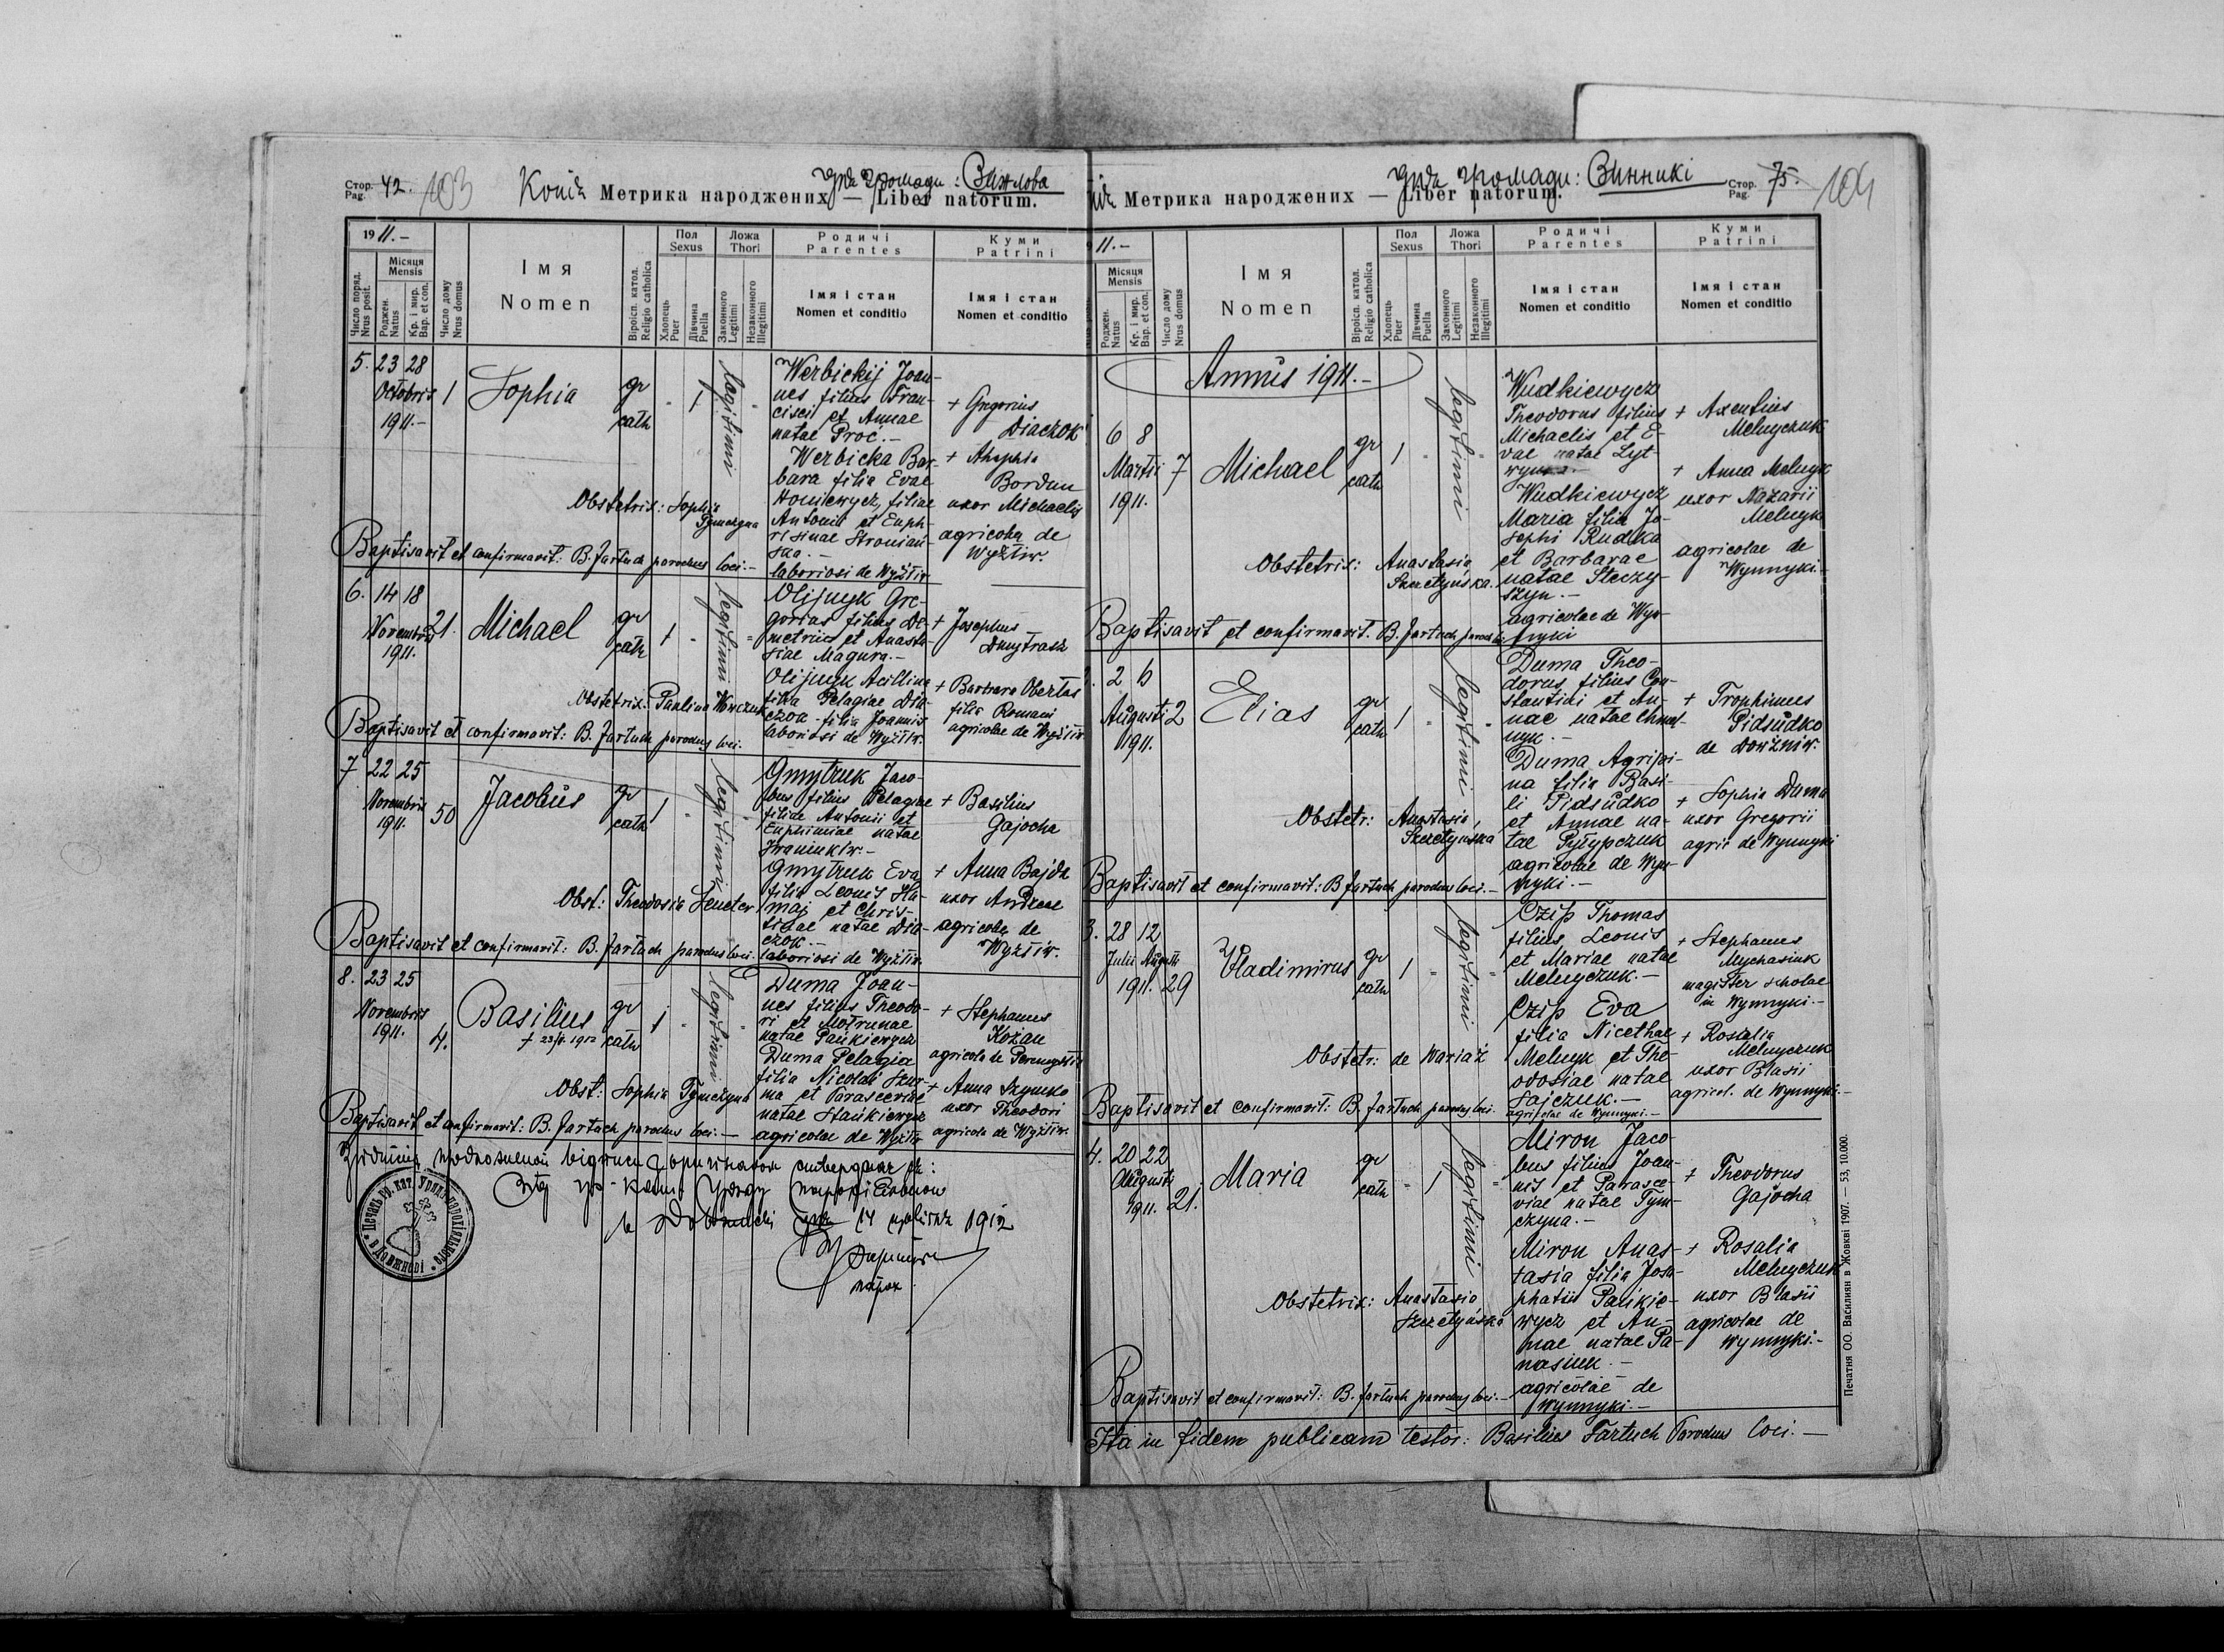 Стор.
Pag. 42.
103
Копія Метрика народжених — Liber natorum.
для громади: Вижлова
1911.-
Число поряд.
Nrus posit.
Місяця
Mensis
Роджен.
Natus
Кр. і мир.
Bap. et con.
Число дому
Nrus domus
Імя
Nomen
Віроісп. катол.
Religio catholica
Пол
Sexus
Хлопець
Puer
Дївчина
Puella
Ложа
Thori
Законного
Legitimi
Незаконного
Illegitimi
Родичі
Parentes
Імя і стан
Nomen et conditio
Куми
Patrini
Імя і стан
Nomen et conditio
5. 23 28
Octobris
1911.-
1
Sophia
gr
cath
- 1
legitimi
Werbickij Joan-
nes filius Fran-
cisci et Annae
natae Proć.-
Werbicka Bar-
bara filia Evae
Honiewycz, filiae
Antonii et Euph-
rosinae
laboriosi de Wyżliw
+ Gregorius
Diaczok
+ Ahaphia
Bordun
uxor Michaelis
agricolae de
Wyżliw.
Obstetrix: Sophia
Tymczyna
Baptisavit et confirmavit: B. Fartuch parochus loci.-
6. 14 18
Novembris
1911.
21.
Michael
gr
cath
1 -
legitimi
Olijnyk Gre-
gorius filius De-
metrius et Anasta-
siae Magura.-
Olijnyk Acillina
filia Pelagiae Dia-
czok - filia Joannis
laboriosi de Wyżliw.
+ Josephus
Dmytrasz
+ Barbara Obertas
filia Romani
agricolae de Wyżliw
Obstetrix: Paulina Wowczuk
Baptisavit et confirmavit: B. Fartuch parochus loci.
7 22 25
Novembris
1911.
50
Jacobus
gr
cath
1 -
legitimi
Gmytruk Jaco-
bus filius Pelagiae
filiae Antonii et
Euphimiae natae
Iwaniukiw.-
Gmytruk Eva
filia Leonis Ha-
maj et Chris-
tinae natae Dia-
czok.-
laboriosi de Wyżliw.
+ Basilius
Gajocha
+ Anna Bajda
uxor Andreae
agricolae de
Wyżliw.
Obst: Theodosia Seneter
Baptisavit et confirmavit: B. Fartuch parochus loci.
8. 23 25
Novembris
1911.
4.
Basilius
gr
cath
1 -
legitimi
Duma Joan-
nes filius Theodo-
ri et Motrunae
natae Pańkiewycz
Duma Pelagia
filia Nicolai Szur-
ma et Parasceviae
natae Stańkiewycz
agricolae de Wyżliw
+ Stephanus
Kożan
+ Anna Szymko
uxor Theodori
agricola de Wyżliw.
Obst: Sophia Tymczyna
Baptisavit et confirmavit: B. Fartuch parochus loci. —
1912
парох
Печать гр. кат. Уряду парохіяльного в Довжневі
Копія Метрика народжених — Liber natorum.
для громади: Винники
Стор.
Pag. 75.
104
1911.-
Місяця
Mensis
Роджен.
Natus
Кр. і мир.
Bap. et con.
Число дому
Nrus domus
Імя
Nomen
Віроісп. катол.
Religio catholica
Пол
Sexus
Хлопець
Puer
Дївчина
Puella
Ложа
Thori
Законного
Legitimi
Незаконного
Illegitimi
Родичі
Parentes
Імя і стан
Nomen et conditio
Куми
Patrini
Імя і стан
Nomen et conditio
Annus 1911.-
6 8
Martii
1911.
7
Michael
gr
cath
1 -
legitimi
Wudkiewycz
Theodorus filius
Michaelis et E-
vae natae Lyt-
wyn
Wudkiewycz
Maria filia Jo-
sephi Rudka
et Barbarae
natae Steczy-
szyn.-
agricolae de Wyn-
nyki
+ Axentius
Melnyczuk
+ Anna Melnyk
uxor Nazarii
Melnyk
agricolae de
Wynnyki.-
Obstetrix: Anastasia
Szczetyńska.
Baptisavit et confirmavit. B. Fartuch paroch. loci
2 6
Augusti
1911.
2
Elias
gr
cath
1 -
legitimi
Duma Theo-
dorus filius Con-
stantini et An-
nae natae Chmel-
nyk.-
Duma Agripi-
na filia Basi-
li Pidsudko
et Annae na-
tae Pyłypczuk
agricolae de Wyn-
nyki.-
+ Trophimus
Pidsudko
de Dowżniw.
+ Sophia Duma
uxor Gregorii
agric de Wynnyki
Obstetr: Anastasia
Szczetyńska
Baptisavit et confirmavit: B Fartuch parochus loci.-
3. 28 12
Julii Augusti
1911. 29
Vladimirus
gr
cath
1 -
legitimi
Czip Thomas
filius Leonis
et Mariae natae
Melnyczuk.-
Czip Eva
filia Nicethae
Melnyk et The-
odosiae natae
Sajczuk.-
agricolae de Wynnyki.-
+ Stephanus
Mychasiuk
magister scholae
in Wynnyki.-
+ Rosalia
Melnyczuk
uxor Blasii
agricol. de Wynnyki.-
Obstetr: de Wariaż
Baptisavit et confirmavit: B. Fartuch paroch. loci.
4. 20 22
Augusti
1911. 21.
Maria
gr
cath
- 1
legitimi
Miron Jaco-
bus filius Joan-
nis et Parasce-
viae natae Tym-
czyna.-
Miron Anas-
tasia filia Josa-
phatii Pańkie-
wycz et An-
nae natae Pa-
nasiuk.-
agricolae de
Wynnyki.-
+ Theodorus
Gajocha
+ Rosalia
Melnyczuk
uxor Blasii
agricolae de
Wynnyki.-
Obstetrix: Anastasia
Szczetyńska
Baptisavit et confirmavit: B. Fartuch parochus loci.-
Ita in fidem publicam testor: Basilius Fartuch Parochus loci.—
Печатня ОО. Василиян в Жовкві 1907. — 53, 10.000.